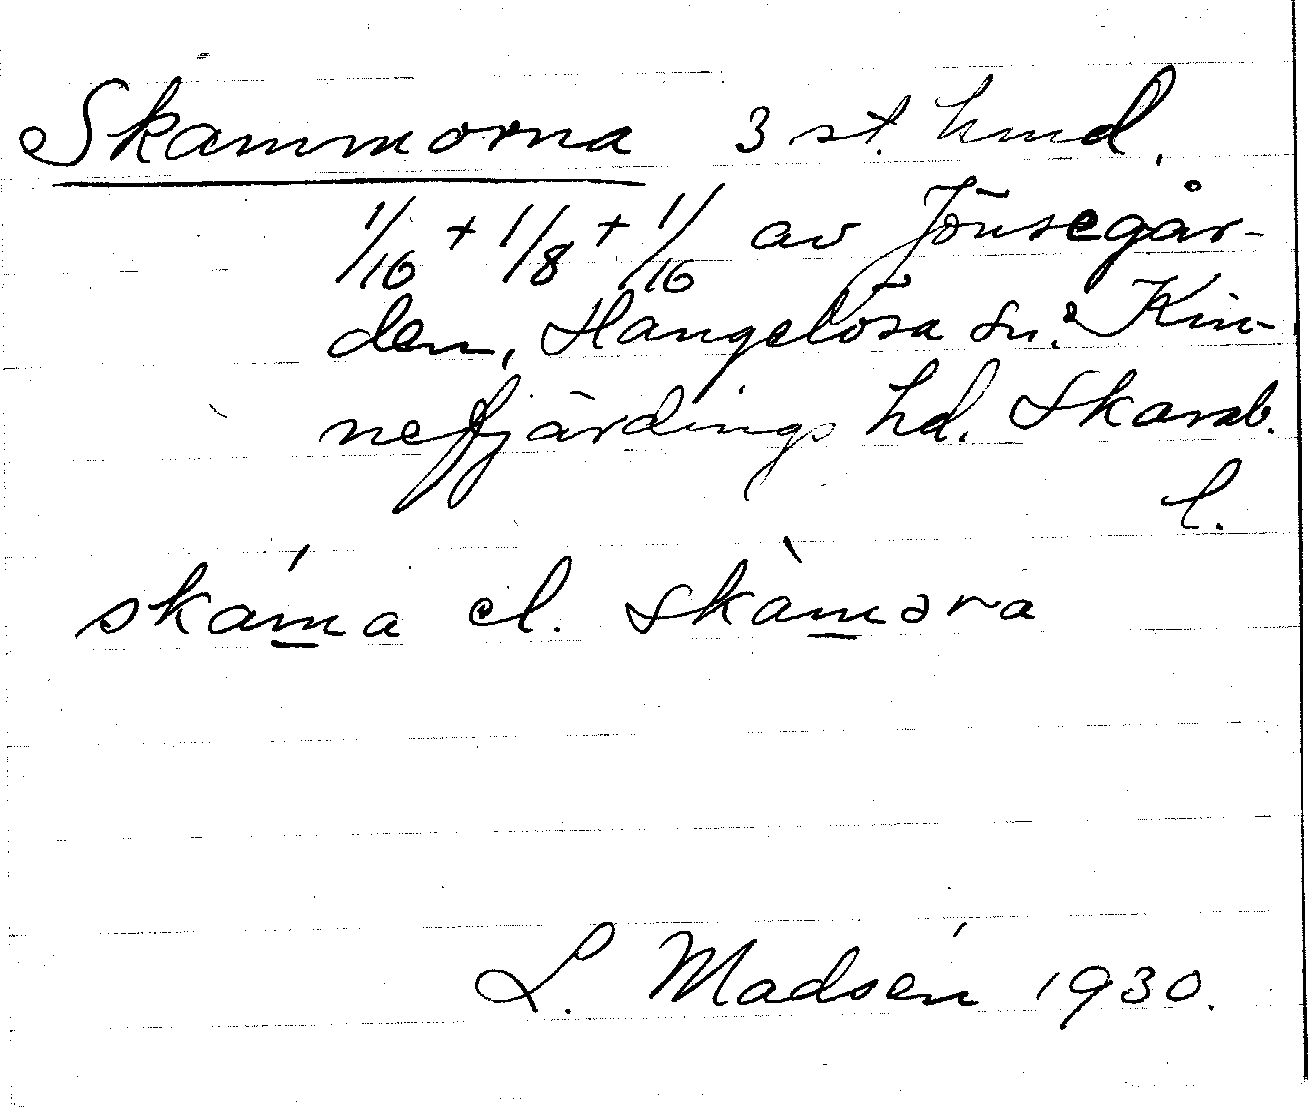 Skammorna 3 st. hmd.
1/16 + 1/8 + 1/16 av Jönsegår-
den, Hangelösa sn. Kin-
nefjärdings hd. Skarab.
l.
skáma el. skàmәra
L. Madsén 1930.